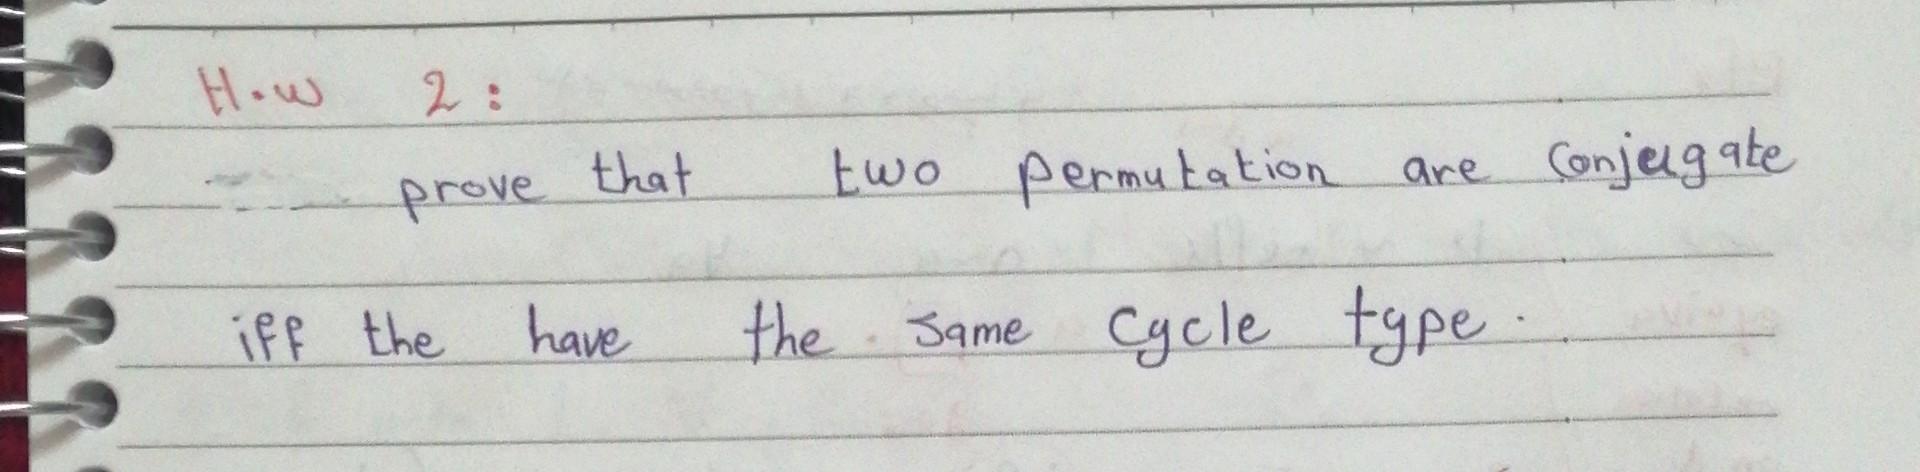 H.w 2:
prove that two permutation are Conjugate
iff the have the same cycle type.